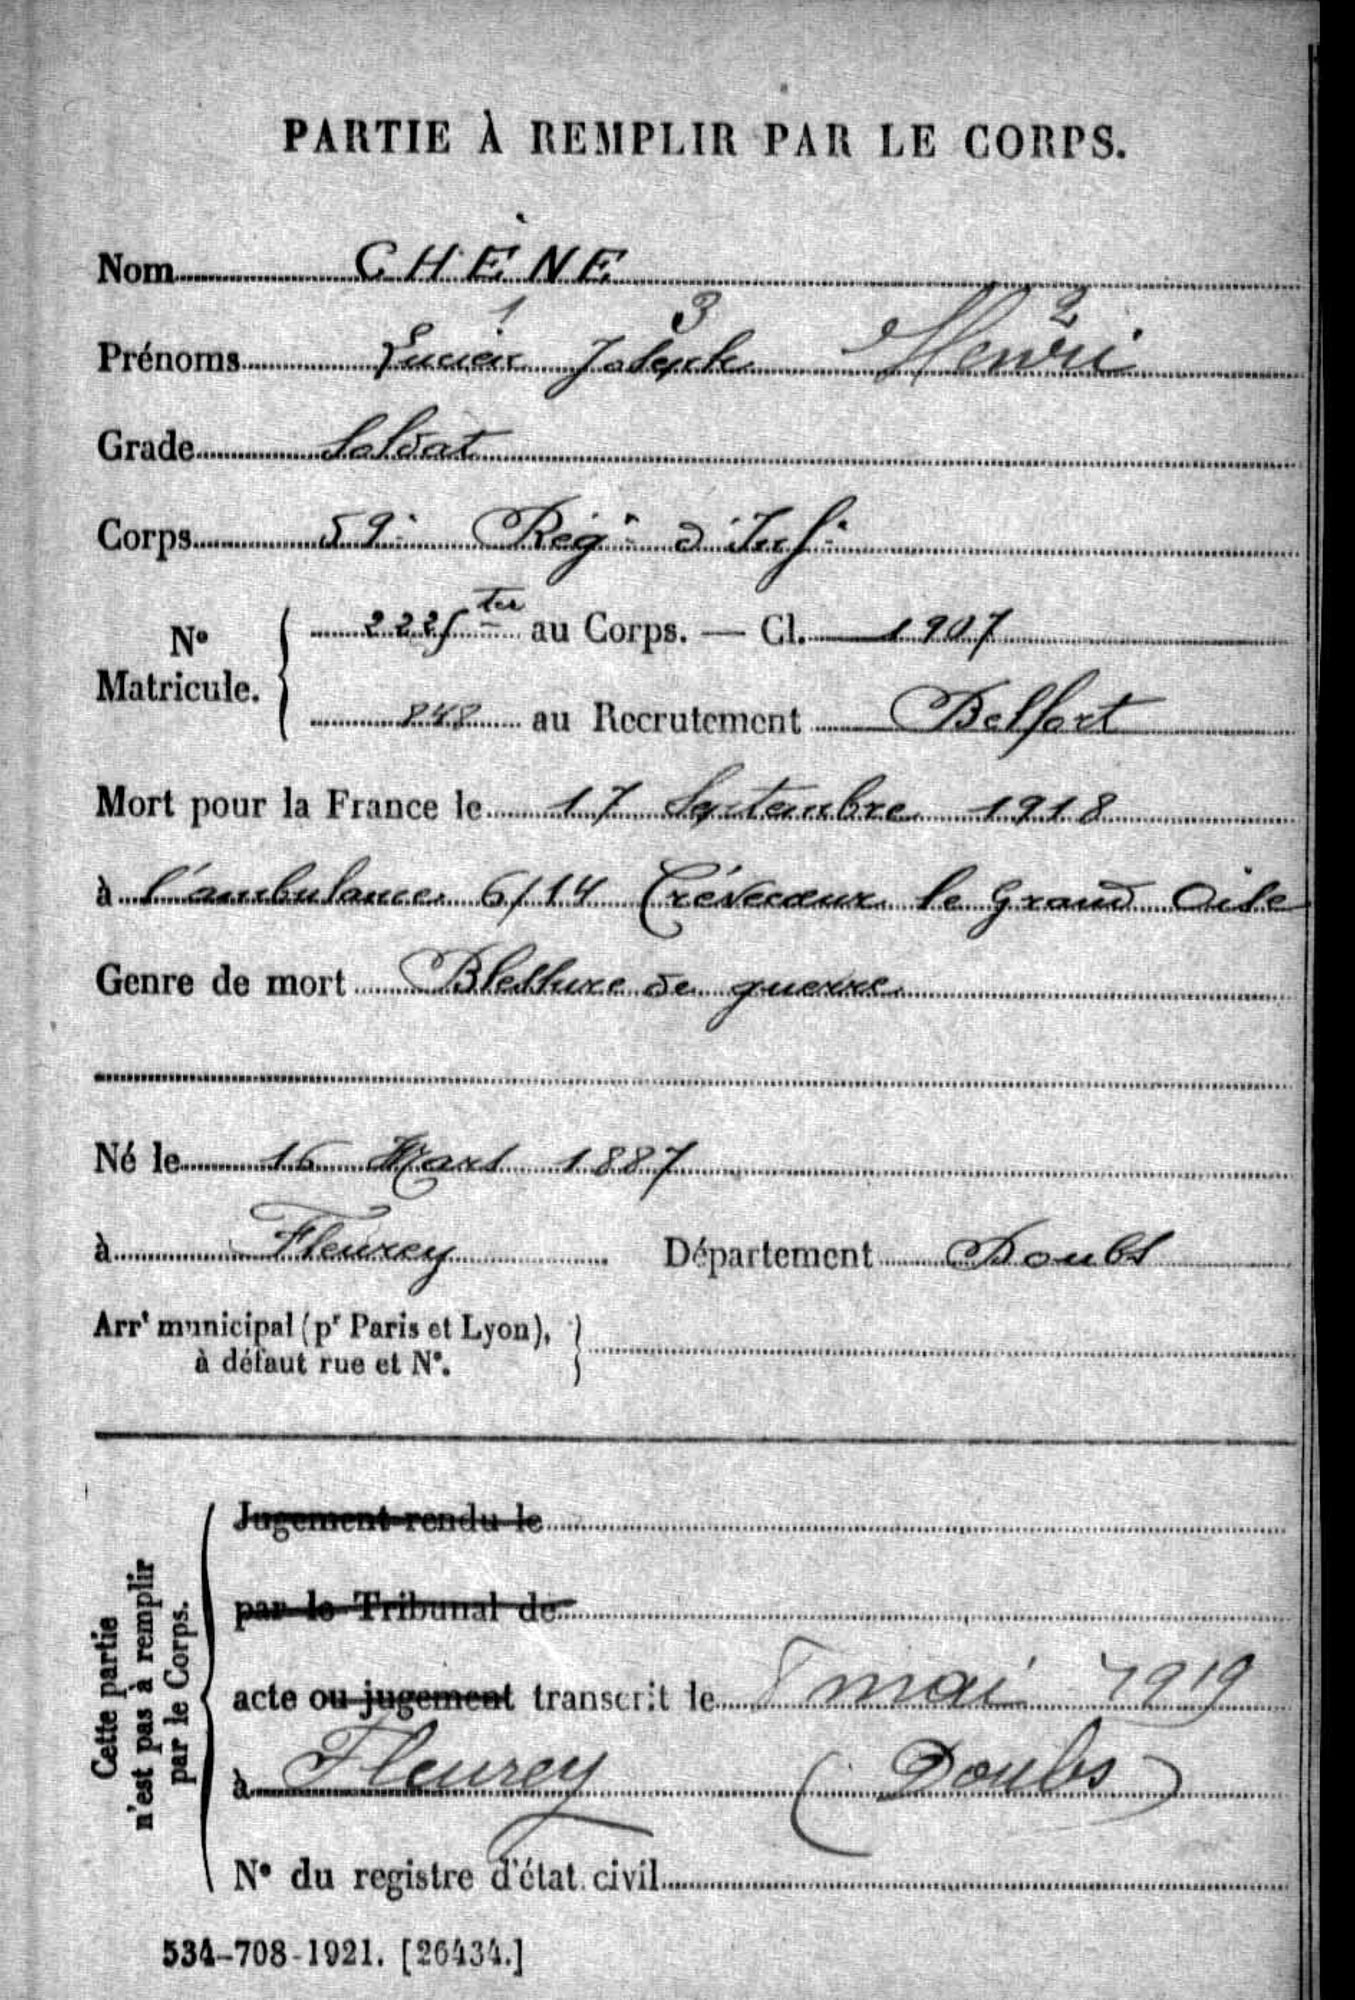 PARTIE À REMPLIR PAR LE CORPS.
Nom CHÈNE
1 3 2
Prénoms Lucien Joseph Henri
Grade Soldat
Corps 59e Régt d'Infie
N° Matricule. 2225 ter au Corps. — Cl. 1907
848 au Recrutement Belfort
Mort pour la France le 17 Septembre 1918
à l'ambulance 6/14 Crévecœur le Grand Oise
Genre de mort Blessure de guerre
Né le 16 Mars 1887
à Fleurey Département Doubs
Arrt municipal (pr Paris et Lyon),
à défaut rue et N°.
Cette partie
n'est pas à remplir
par le Corps.
Jugement rendu le
par le Tribunal de
acte ou jugement transcrit le 8 mai 1919
à Fleurey (Doubs)
N° du registre d'état civil
534-708-1921. [26434.]